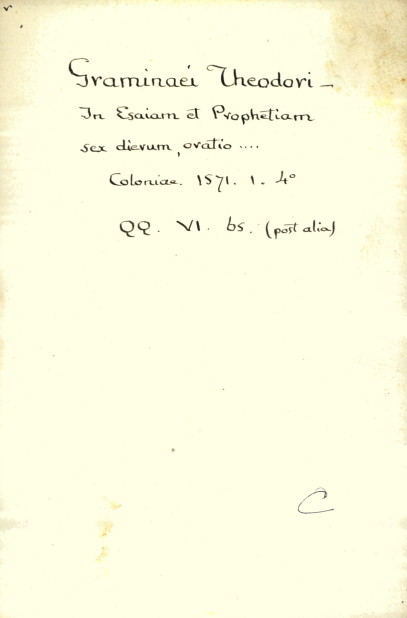 Graminaei Theodori –
In Esaiam et Prophetiam
sex dierum, oratio ....
Coloniae. 1571. 1. 4°
QQ. VI. 65. (post alia)
C